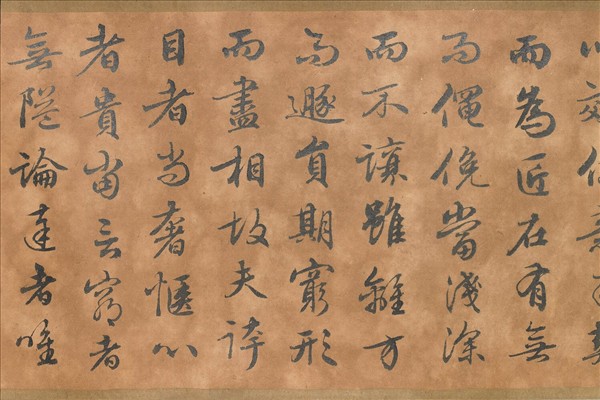 以效伎意司契
而為匠在有無
而僶俛當淺深
而不讓雖離方
而遯員期窮形
而盡相故夫誇
目者尚奢愜心
者貴當言窮者
無隘論達者唯